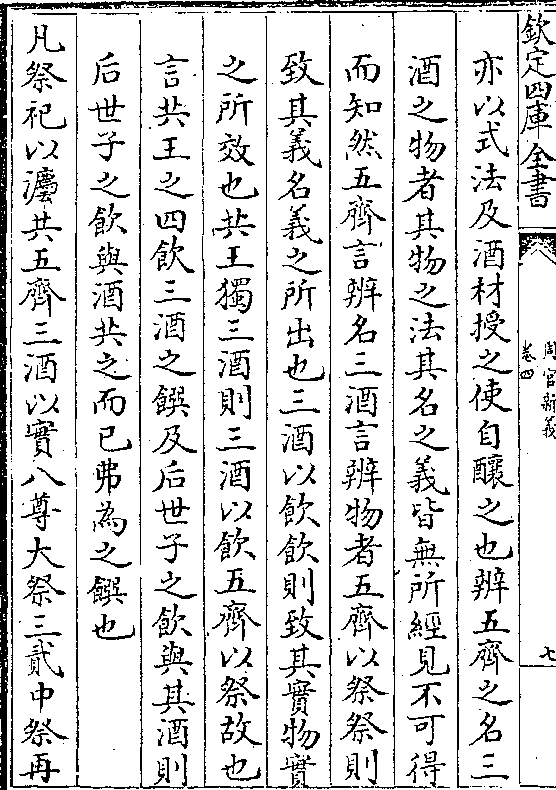 欽定四庫全書
周官新義
卷四
七
亦以式法及酒材授之使自釀之也辨五齊之名三
酒之物者其物之法其名之義皆無所經見不可得
而知然五齊言辨名三酒言辨物者五齊以祭祭則
致其義名義之所出也三酒以飲飲則致其實物實
之所效也共王獨三酒則三酒以飲五齊以祭故也
言共王之四飲三酒之饌及后世子之飲與其酒則
后世子之飲與酒共之而已弗為之饌也
凡祭祀以灋共五齊三酒以實八尊大祭三貳中祭再